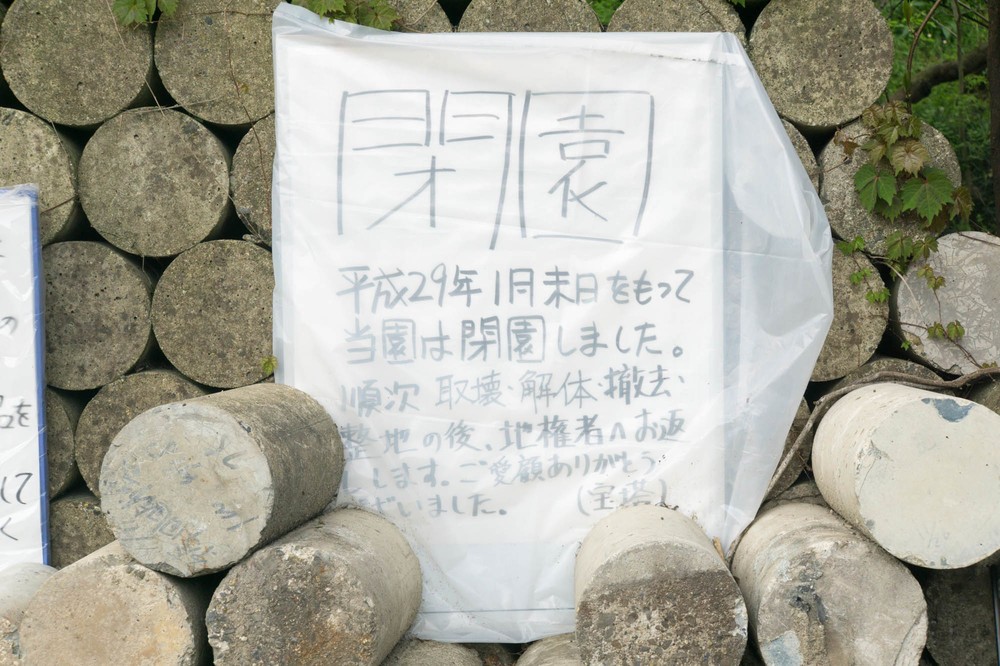 閉園
平成29年1月末日をもって
当園は閉園しました。
順次 取壊・解体・撤去、
整地の後、地権者へお返
します。ご愛顧ありがとう
ございました。 (宝塔)
の
を
して
く